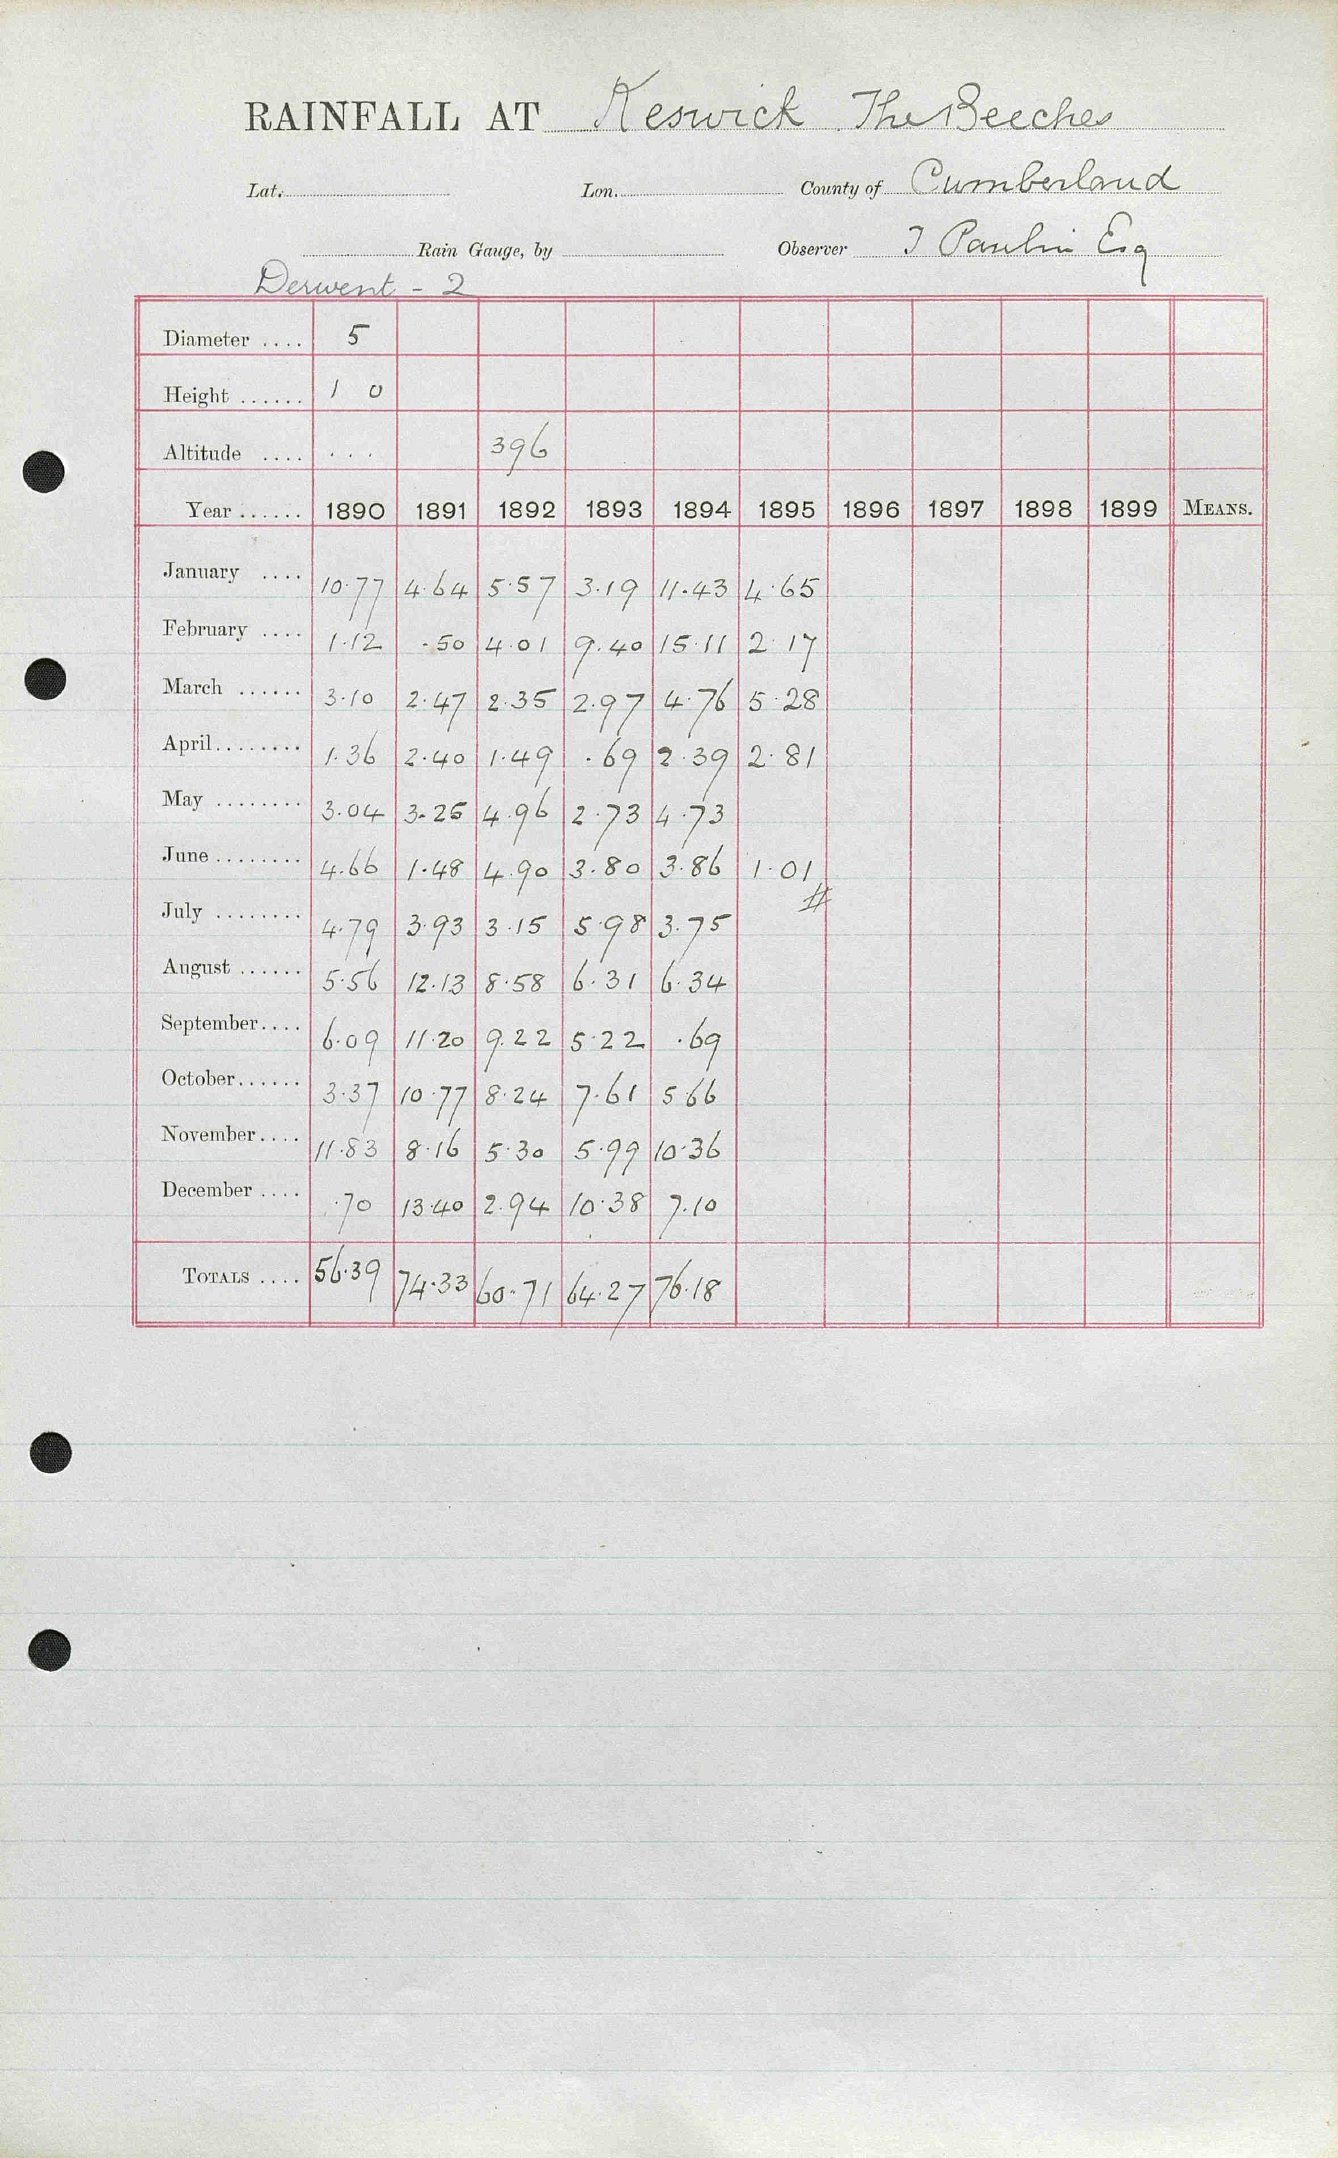 RAINFALL AT Keswick The Beeches
Lat. Lon. County of Cumberland
Rain Gauge, by Observer J Paulin Esq
Derwent - 2
Diameter .... 5
Height ...... 1 0
Altitude .... ... 396
Year ...... 1890 1891 1892 1893 1894 1895 1896 1897 1898 1899 MEANS.
January .... 10.77 4.64 5.57 3.19 11.43 4.65
February .... 1.12 .50 4.01 9.40 15.11 2.17
March ...... 3.10 2.47 2.35 2.97 4.76 5.28
April ........ 1.36 2.40 1.49 .69 2.39 2.81
May ........ 3.04 3.25 4.96 2.73 4.73
June ........ 4.66 1.48 4.90 3.80 3.86 1.01
July ........ 4.79 3.93 3.15 5.98 3.75 #
August ...... 5.56 12.13 8.58 6.31 6.34
September .... 6.09 11.20 9.22 5.22 .69
October ...... 3.37 10.77 8.24 7.61 5.66
November .... 11.83 8.16 5.30 5.99 10.36
December .... .70 13.40 2.94 10.38 7.10
TOTALS .... 56.39 74.33 60.71 64.27 76.18